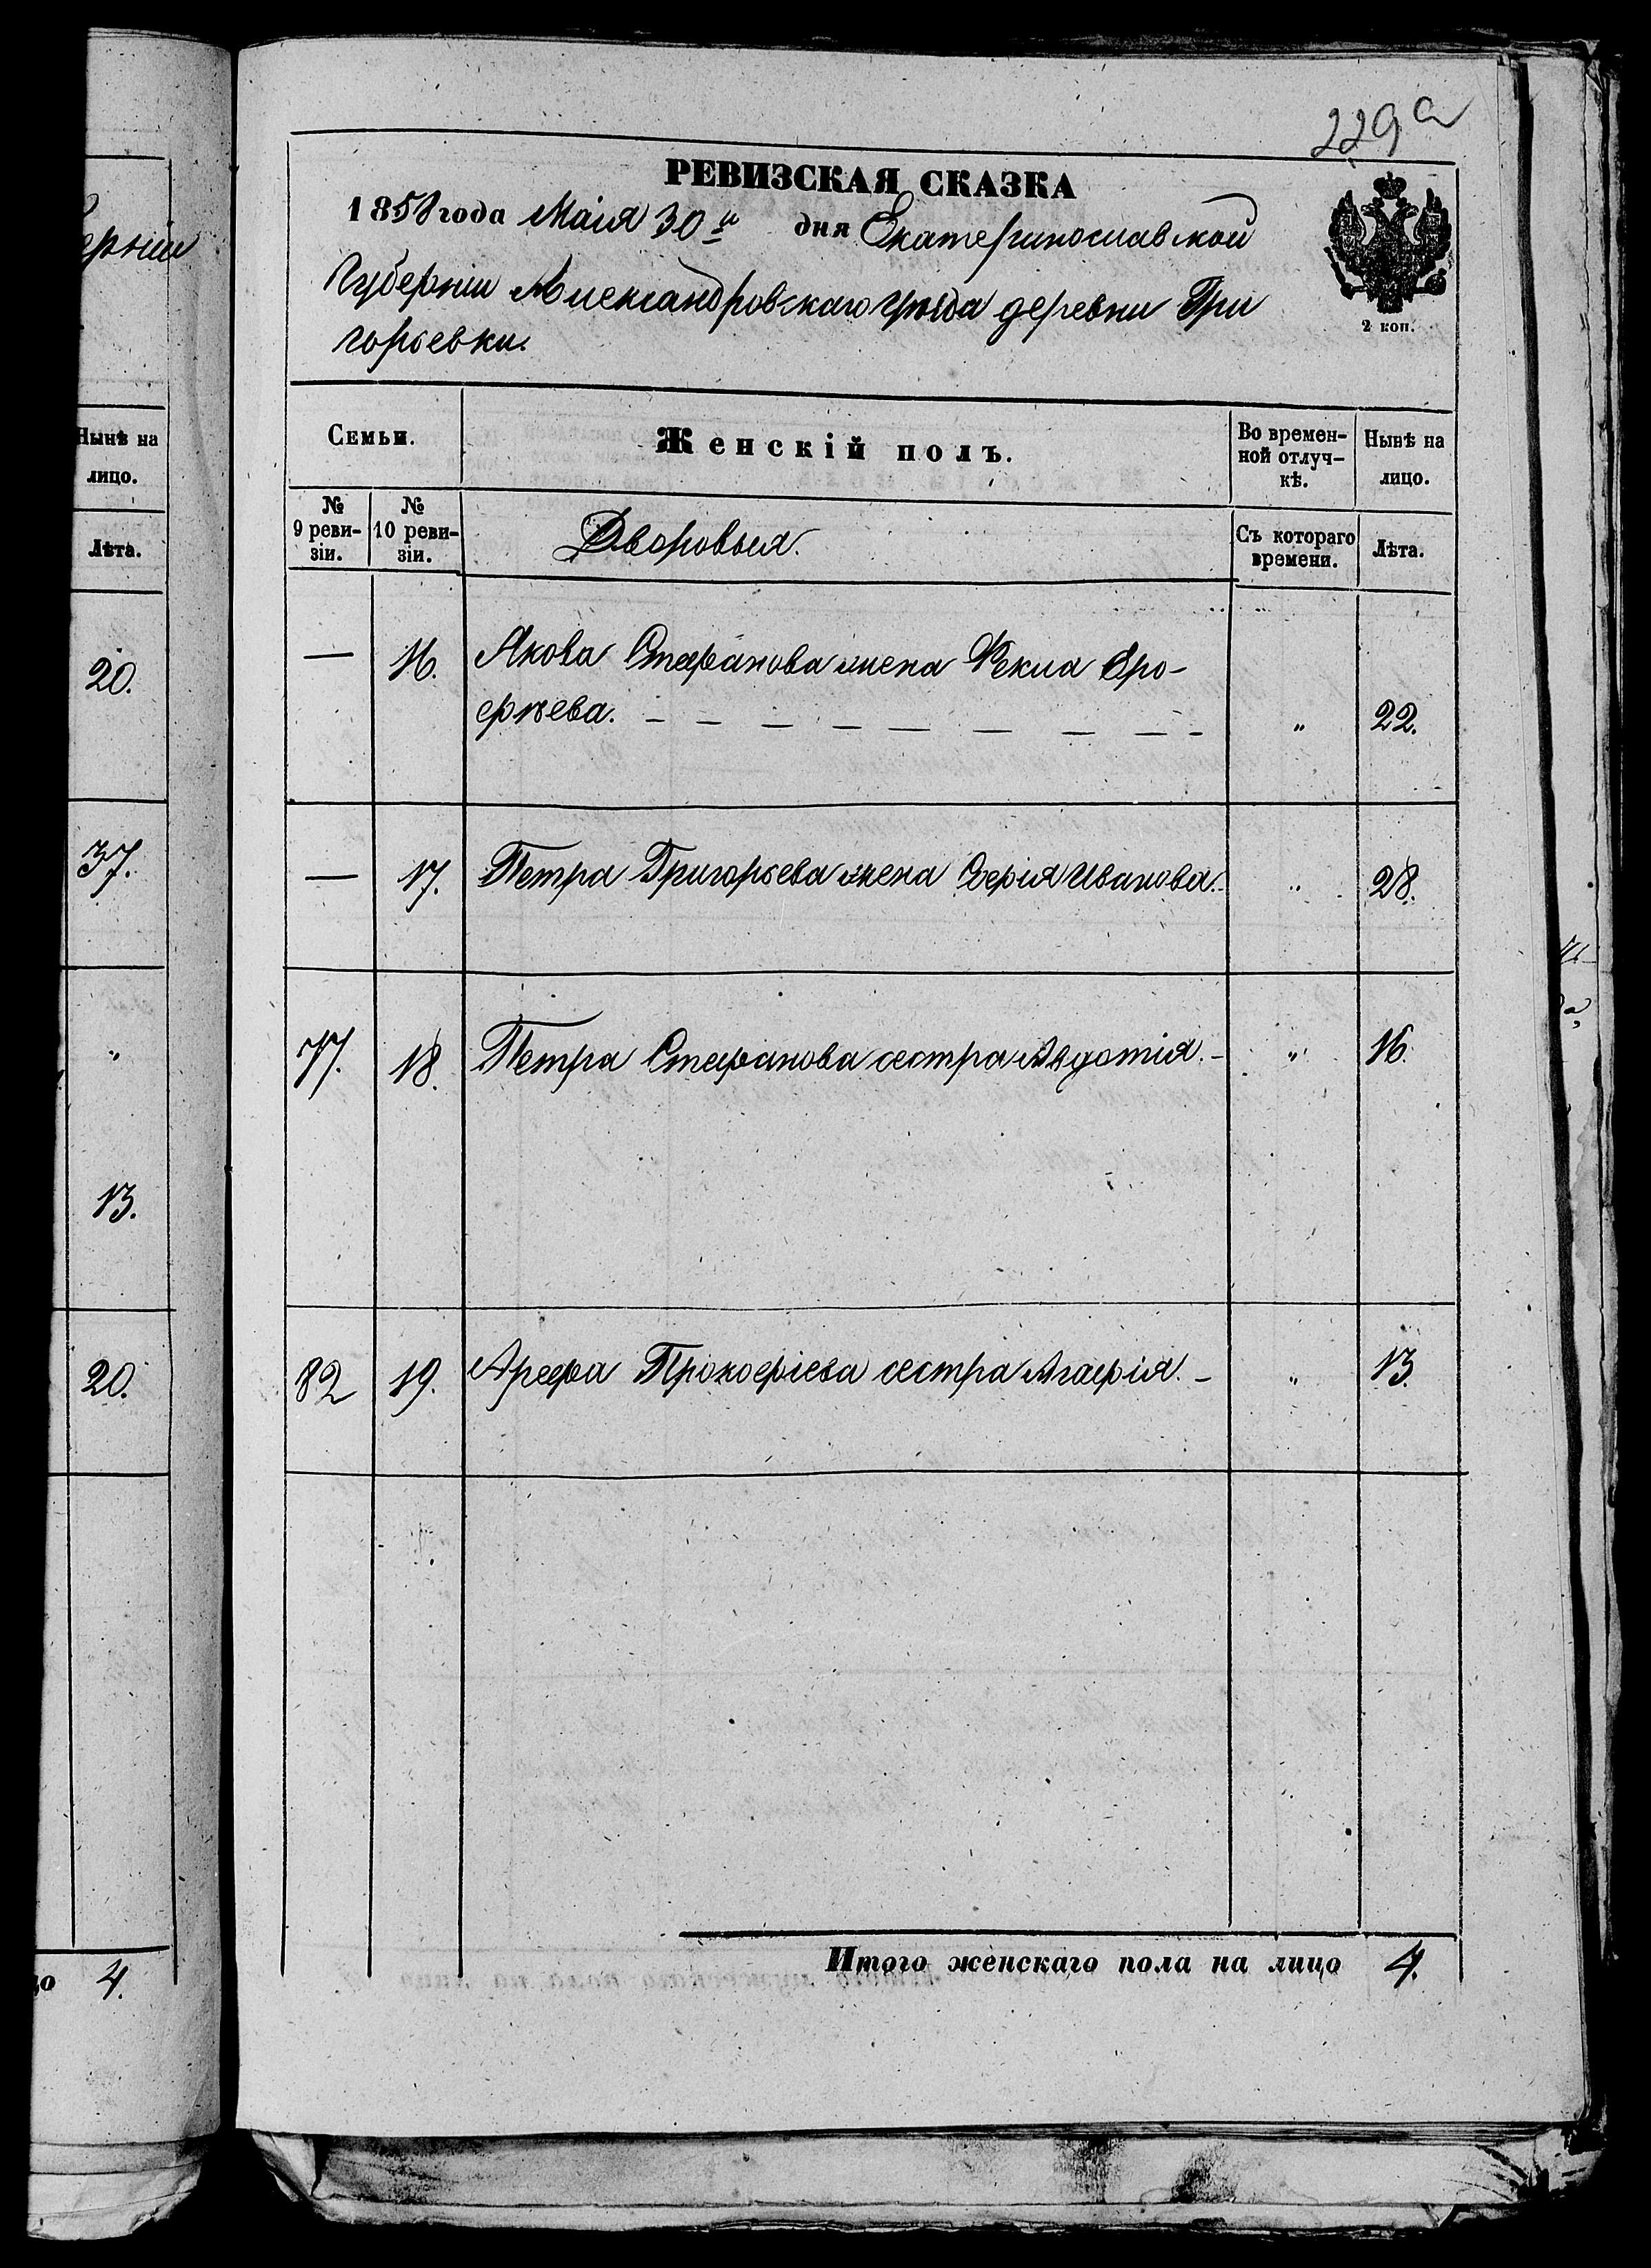 ерніи
Нынѣ на
лицо.
Лѣта.
20.
37.
"
13.
20.
цо 4.
229а
РЕВИЗСКАЯ СКАЗКА
1858 года Маія 30го дня Екатеринославской
Губерніи Александровскаго уѣзда деревни Гри
горьевки.
2 коп.
Семьи. Женскій полъ. Во времен- Нынѣ на
ной отлуч- лицо.
кѣ.
№ №
9 реви- 10 реви- Дворовыя. Съ котораго Лѣта.
зіи. зіи. времени.
— 16. Якова Стефанова жена Фекла Еро-
фѣева. — — — — — — — — — " 22.
— 17. Петра Григорьева жена Иванова. " 28.
77. 18. Петра Стефанова сестра Авдотія. — " 16.
82 19. Арефа Прокофіева сестра Агафія. — " 13.
Итого женскаго пола на лицо 4.